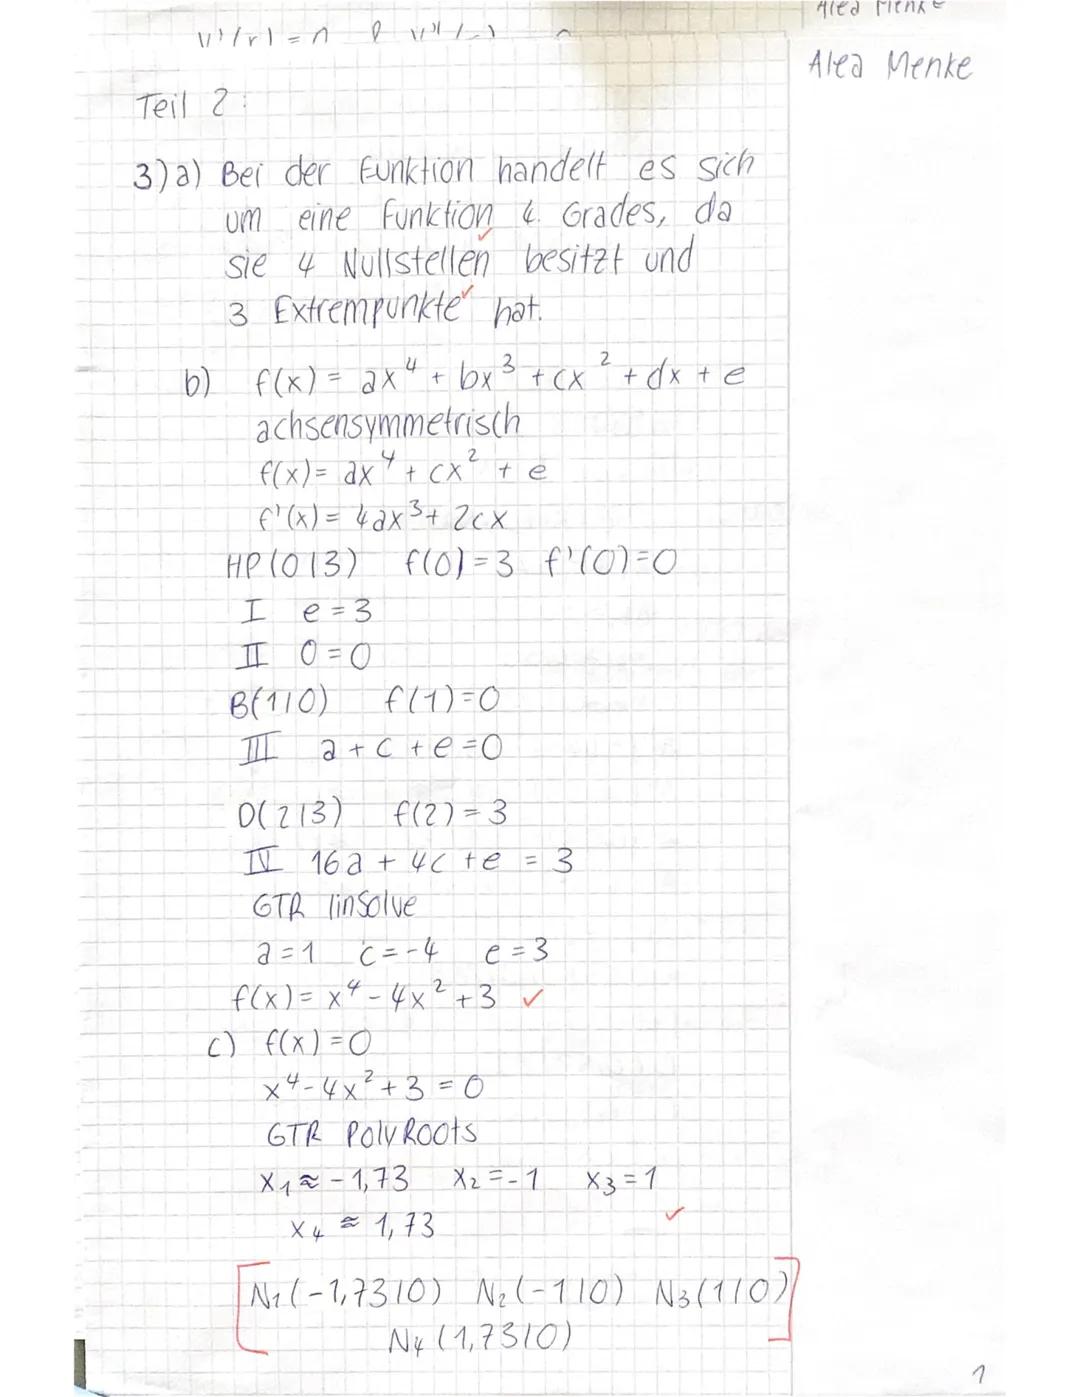 Alea Menke
Alea Menke
Teil 2:
3) a) Bei der Funktion handelt es sich
um eine Funktion 4. Grades, da
sie 4 Nullstellen besitzt und
3 Extrempunkte hat.
b) f(x) = ax⁴ + bx³ + cx² + dx + e
achsensymmetrisch
f(x) = ax⁴ + cx² + e
f'(x) = 4ax³ + 2cx
HP(0|3) f(0) = 3 f'(0) = 0
I e = 3
II 0 = 0
B(1|0) f(1) = 0
III a + c + e = 0
D(2|3) f(2) = 3
IV 16a + 4c + e = 3
GTR linSolve
a = 1 c = -4 e = 3
f(x) = x⁴ - 4x² + 3 ✓
c) f(x) = 0
x⁴ - 4x² + 3 = 0
GTR PolyRoots
x₁ ≈ -1,73 x₂ = -1 x₃ = 1
x₄ ≈ 1,73 ✓
[N₁(-1,73|0) N₂(-1|0) N₃(1|0)
N₄(1,73|0)]
1